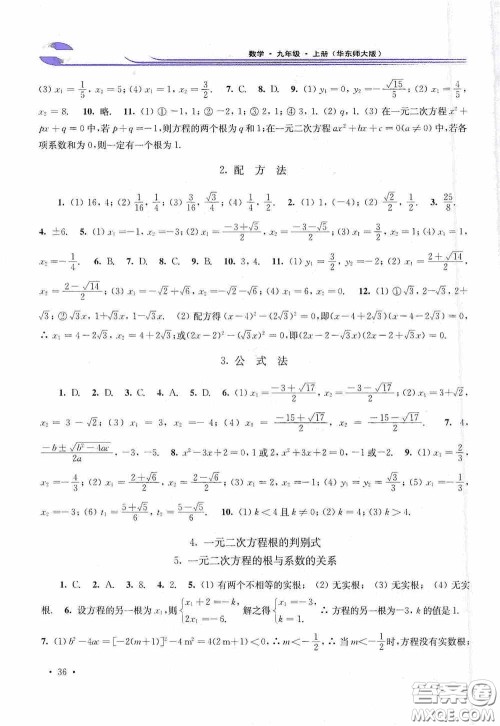 数学·九年级·上册(华东师大版)
(3) x₁=1/5, x₂=5; (4) x₁=1, x₂=3/2. 7. C. 8. D. 9. (1) x₁=0, x₂=-√15/5; (2) x₁=4/5,
x₂=8. 10. 略. 11. (1) ①-1, 1; ②-2, 1; ③2, 1; ④3, 1. (2) q, 1. (3) 在一元二次方程x²+
px+q=0中,若p+q=-1,则方程的两个根为q和1;在一元二次方程ax²+bx+c=0(a≠0)中,若各
项系数和为0,则一定有一个根为1.
2. 配方法
1. (1) 16, 4; (2) 1/16, 1/4; (3) 3/16, √3/4; (4) 1/4, 1/2. 2. (1) 1, (-4); (2) √2/2, 1/2. 3. 25/8.
4. ±6. 5. (1) x₁=-1, x₂=-3; (2) x₁=(-3+√5)/2, x₂=(-3-√5)/2; (3) y₁=1/2, y₂=-3/2; (4) x₁=1,
x₂=-1/4. 6. B. 7. D. 8. C. 9. D. 10. 3, 4. 11. (1) y₁=3/2, y₂=1/2; (2) x₁=(2+√14)/2,
x₂=(2-√14)/2; (3) x₁=-√2+√6, x₂=-√2-√6; (4) x₁=3, x₂=-2/3. 12. (1) ①√3, 2-√3, 2+
√3; ②√3x, 1-√3x, 1+√3x. (2) 配方得(x-4)²-(2√3)²=0,即(x-4+2√3)(x-4-2√3)=0,
∴ x₁=4-2√3, x₂=4+2√3;或(2x-2)²-(√3x)²=0,即(2x-2+√3x)(2x-2-√3x)=0,
∴ x₁=4-2√3, x₂=4+2√3.
3. 公式法
1. D. 2. C. 3. C. 4. A. 5. D. 6. (1) x₁=(-3+√17)/2, x₂=(-3-√17)/2; (2) x₁=3+√2,
x₂=3-√2; (3) x₁=2, x₂=-4; (4) x₁=(-15+√17)/2, x₂=(-15-√17)/2. 7. 4,
(-b±√(b²-4ac))/2a, -3, -5. 8. x²-3x+2=0, 1或2, x²+3x+2=0, -1或-2. 9. (1) x₁=2/3,
x₂=-4/3; (2) x₁=(2+√6)/2, x₂=(2-√6)/2; (3) x₁=2, x₂=-1; (4) x₁=8, x₂=-6; (5) x₁=1/2,
x₂=-3; (6) t₁=(5+√5)/6, t₂=(5-√5)/6. 10. (1) k<4且k≠0; (2) k=4; (3) k>4.
4. 一元二次方程根的判别式
5. 一元二次方程的根与系数的关系
1. C. 2. A. 3. 8. 4. 2. 5. (1) 有两个不相等的实根; (2) 无实根; (3) 无实根; (4) 无实
根. 6. 设方程的另一根为x₁,则{x₁+2=-k, 解之得{ ∴ 方程的另一根为-3, k的值是1.
7. (1) b²-4ac=[-2(m+1)]²-4m²=4(2m+1)<0, ∴ m<-1/2, ∴ 当m<-1/2时,方程没有实数根;
· 36 ·